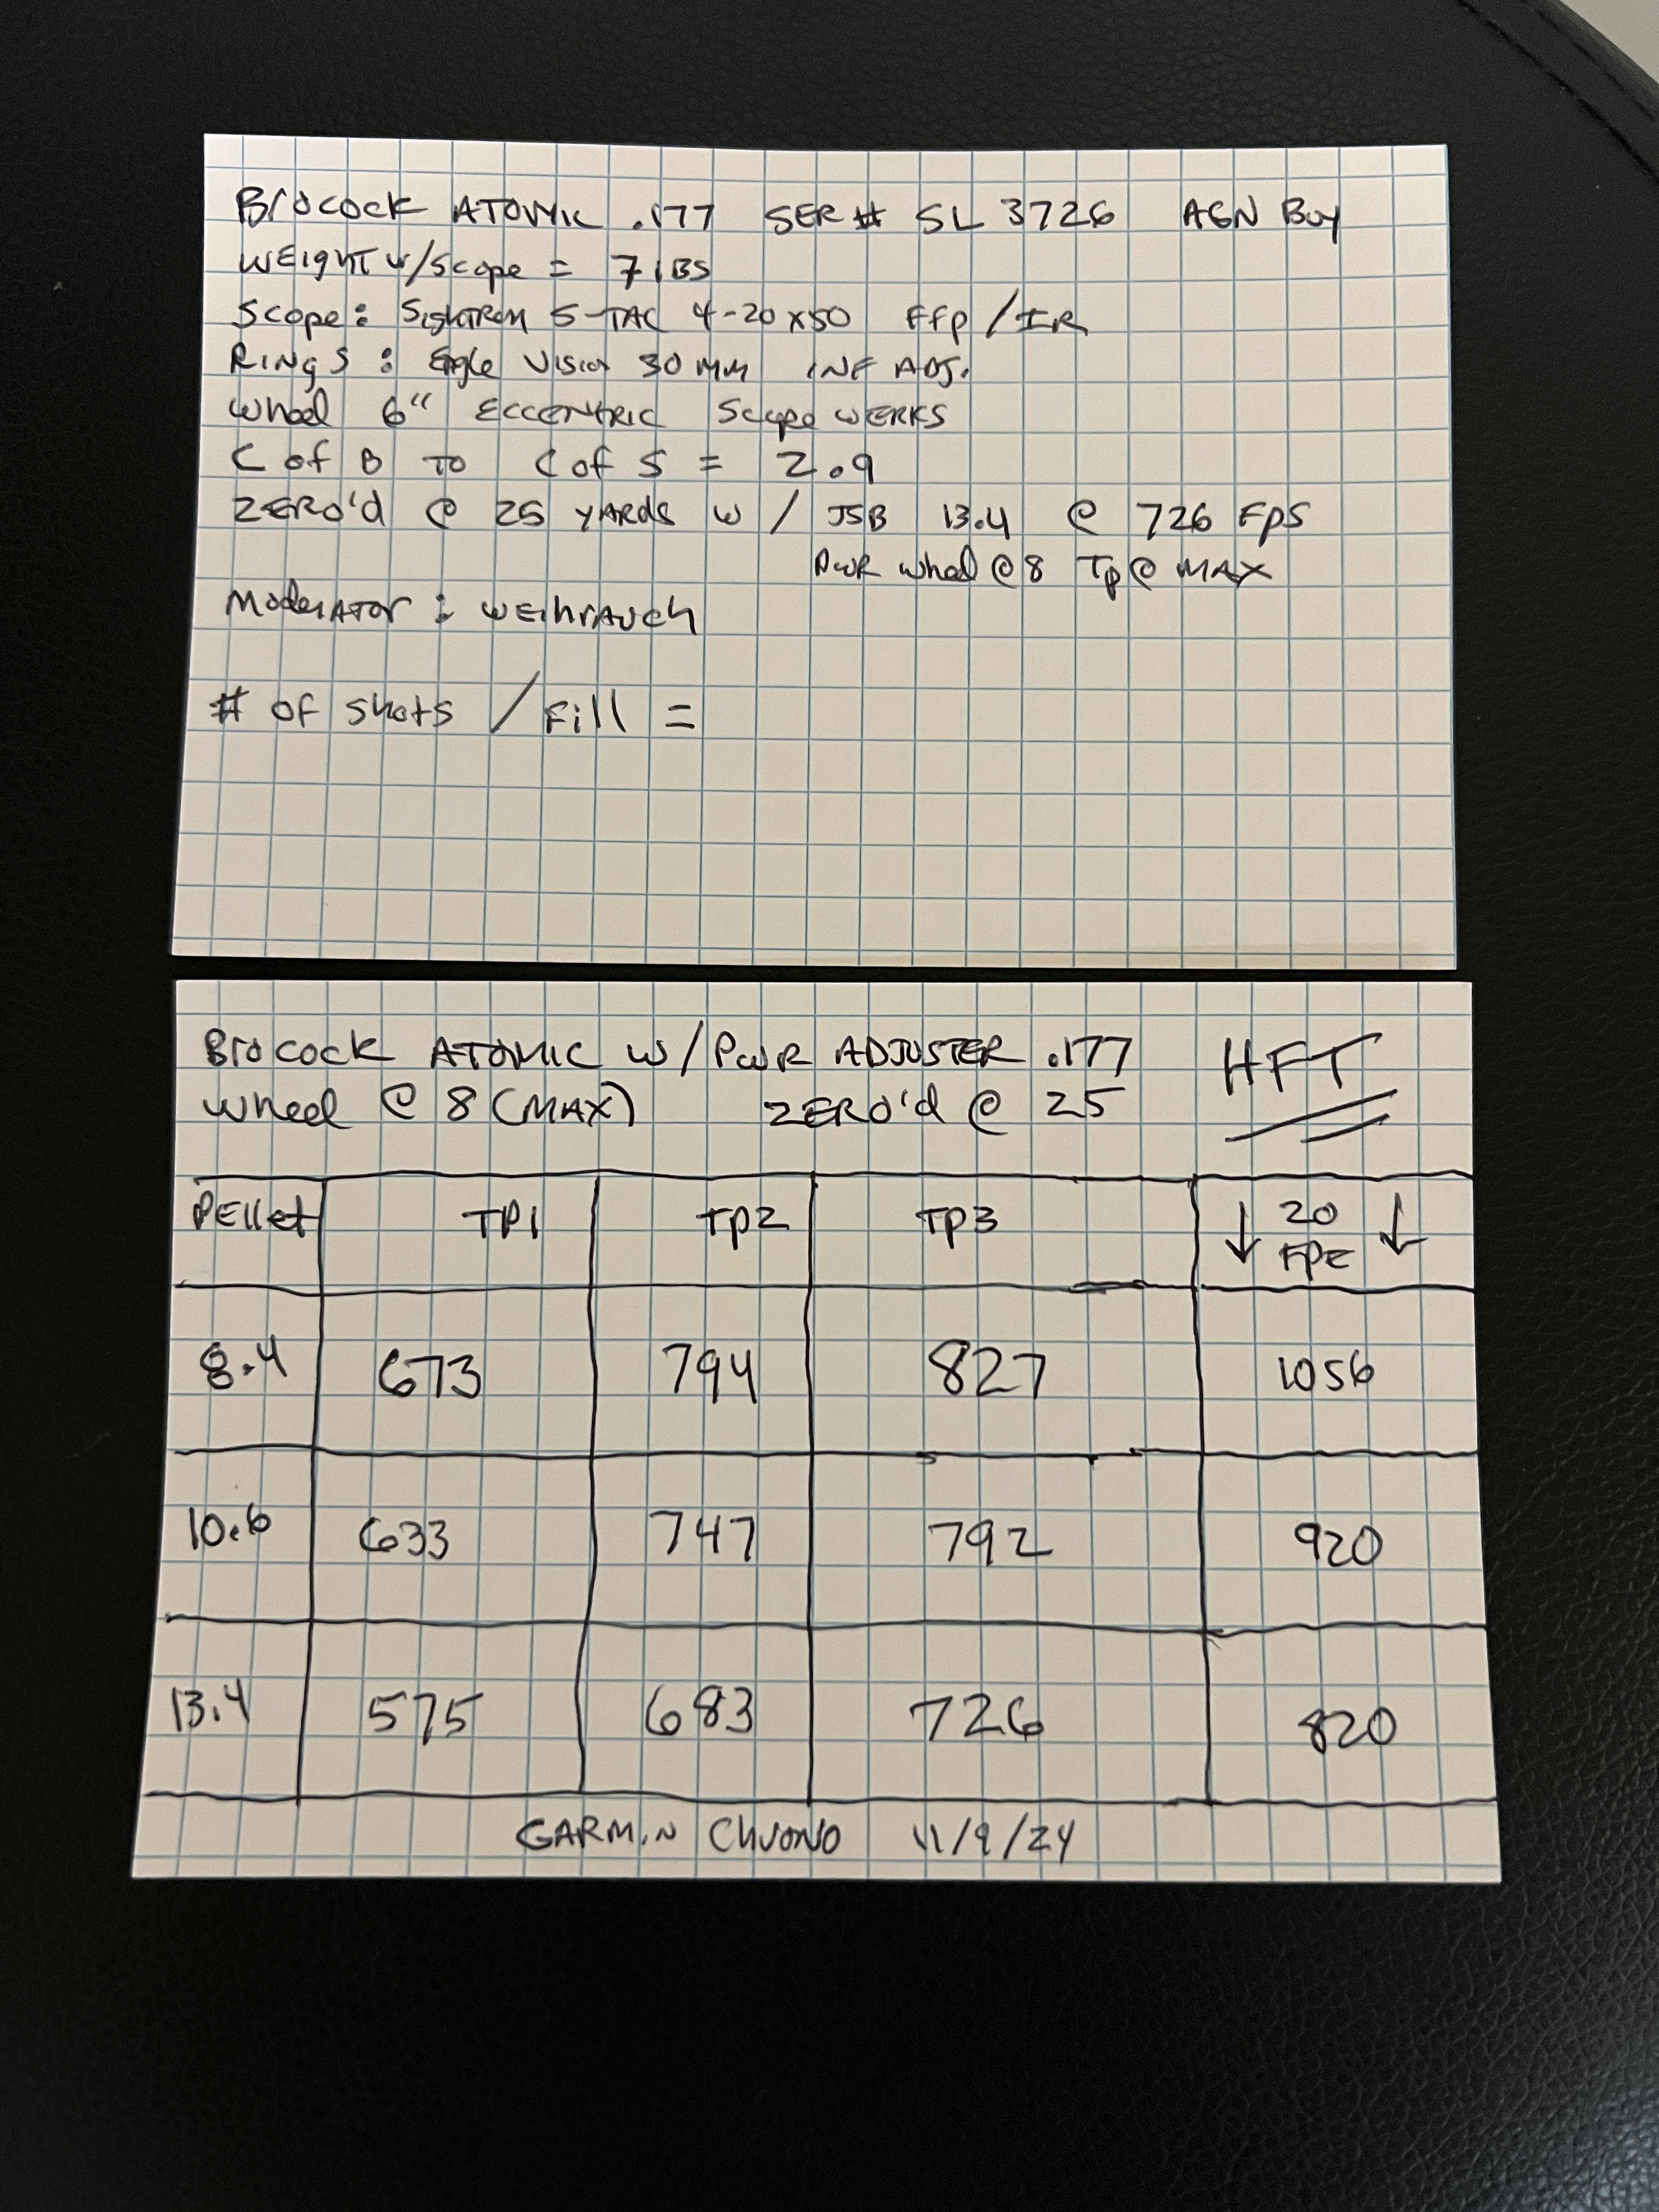 Brocock ATOMIC .177 SER# SL 3726 AGN Buy
WEIGHT w/scope = 7 LBS
Scope: SightRon S-TAC 4-20x50 FFP/IR
RINGS: Eagle Vision 30MM INF ADJ.
Wheel 6" ECCENTRIC Scope WERKS
C of B TO C of S = 2.9
ZERO'd @ 25 YARds w/ JSB 13.4 @ 726 FPS
PWR wheel @ 8 Tp @ MAX
ModerATor: WEihrAuch
# OF shots / Fill =
Brocock ATOMIC w/PWR ADJUSTER .177 HFT
wheel @ 8 (MAX) ZERO'd @ 25
PEllet TP1 TP2 TP3 ↓ 20 FPE ↓
8.4 673 794 827 1056
10.6 633 747 792 920
13.4 575 683 726 820
GARMIN ChronO 11/9/24